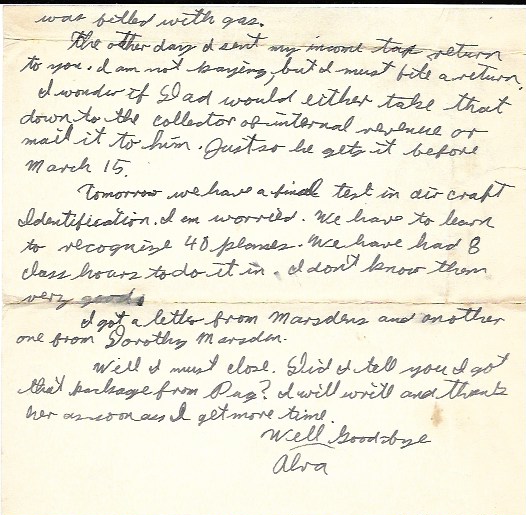 was filled with gas.
The other day I sent my income tax return
to you. I am not paying, but I must file a return.
I wonder if Dad would either take that
down to the collector of internal revenue or
mail it to him. Just so he gets it before
March 15.
Tomorrow we have a final test in air craft
Identification. I am worried. We have to learn
to recognize 40 planes. We have had 8
class hours to do it in. I don't know them
very good.
I got a letter from Marsdens and another
one from Dorothy Marsden.
Well I must close. Did I tell you I got
that package from Peg? I will write and thank
her as soon as I get more time.
Well Goodbye
Alva